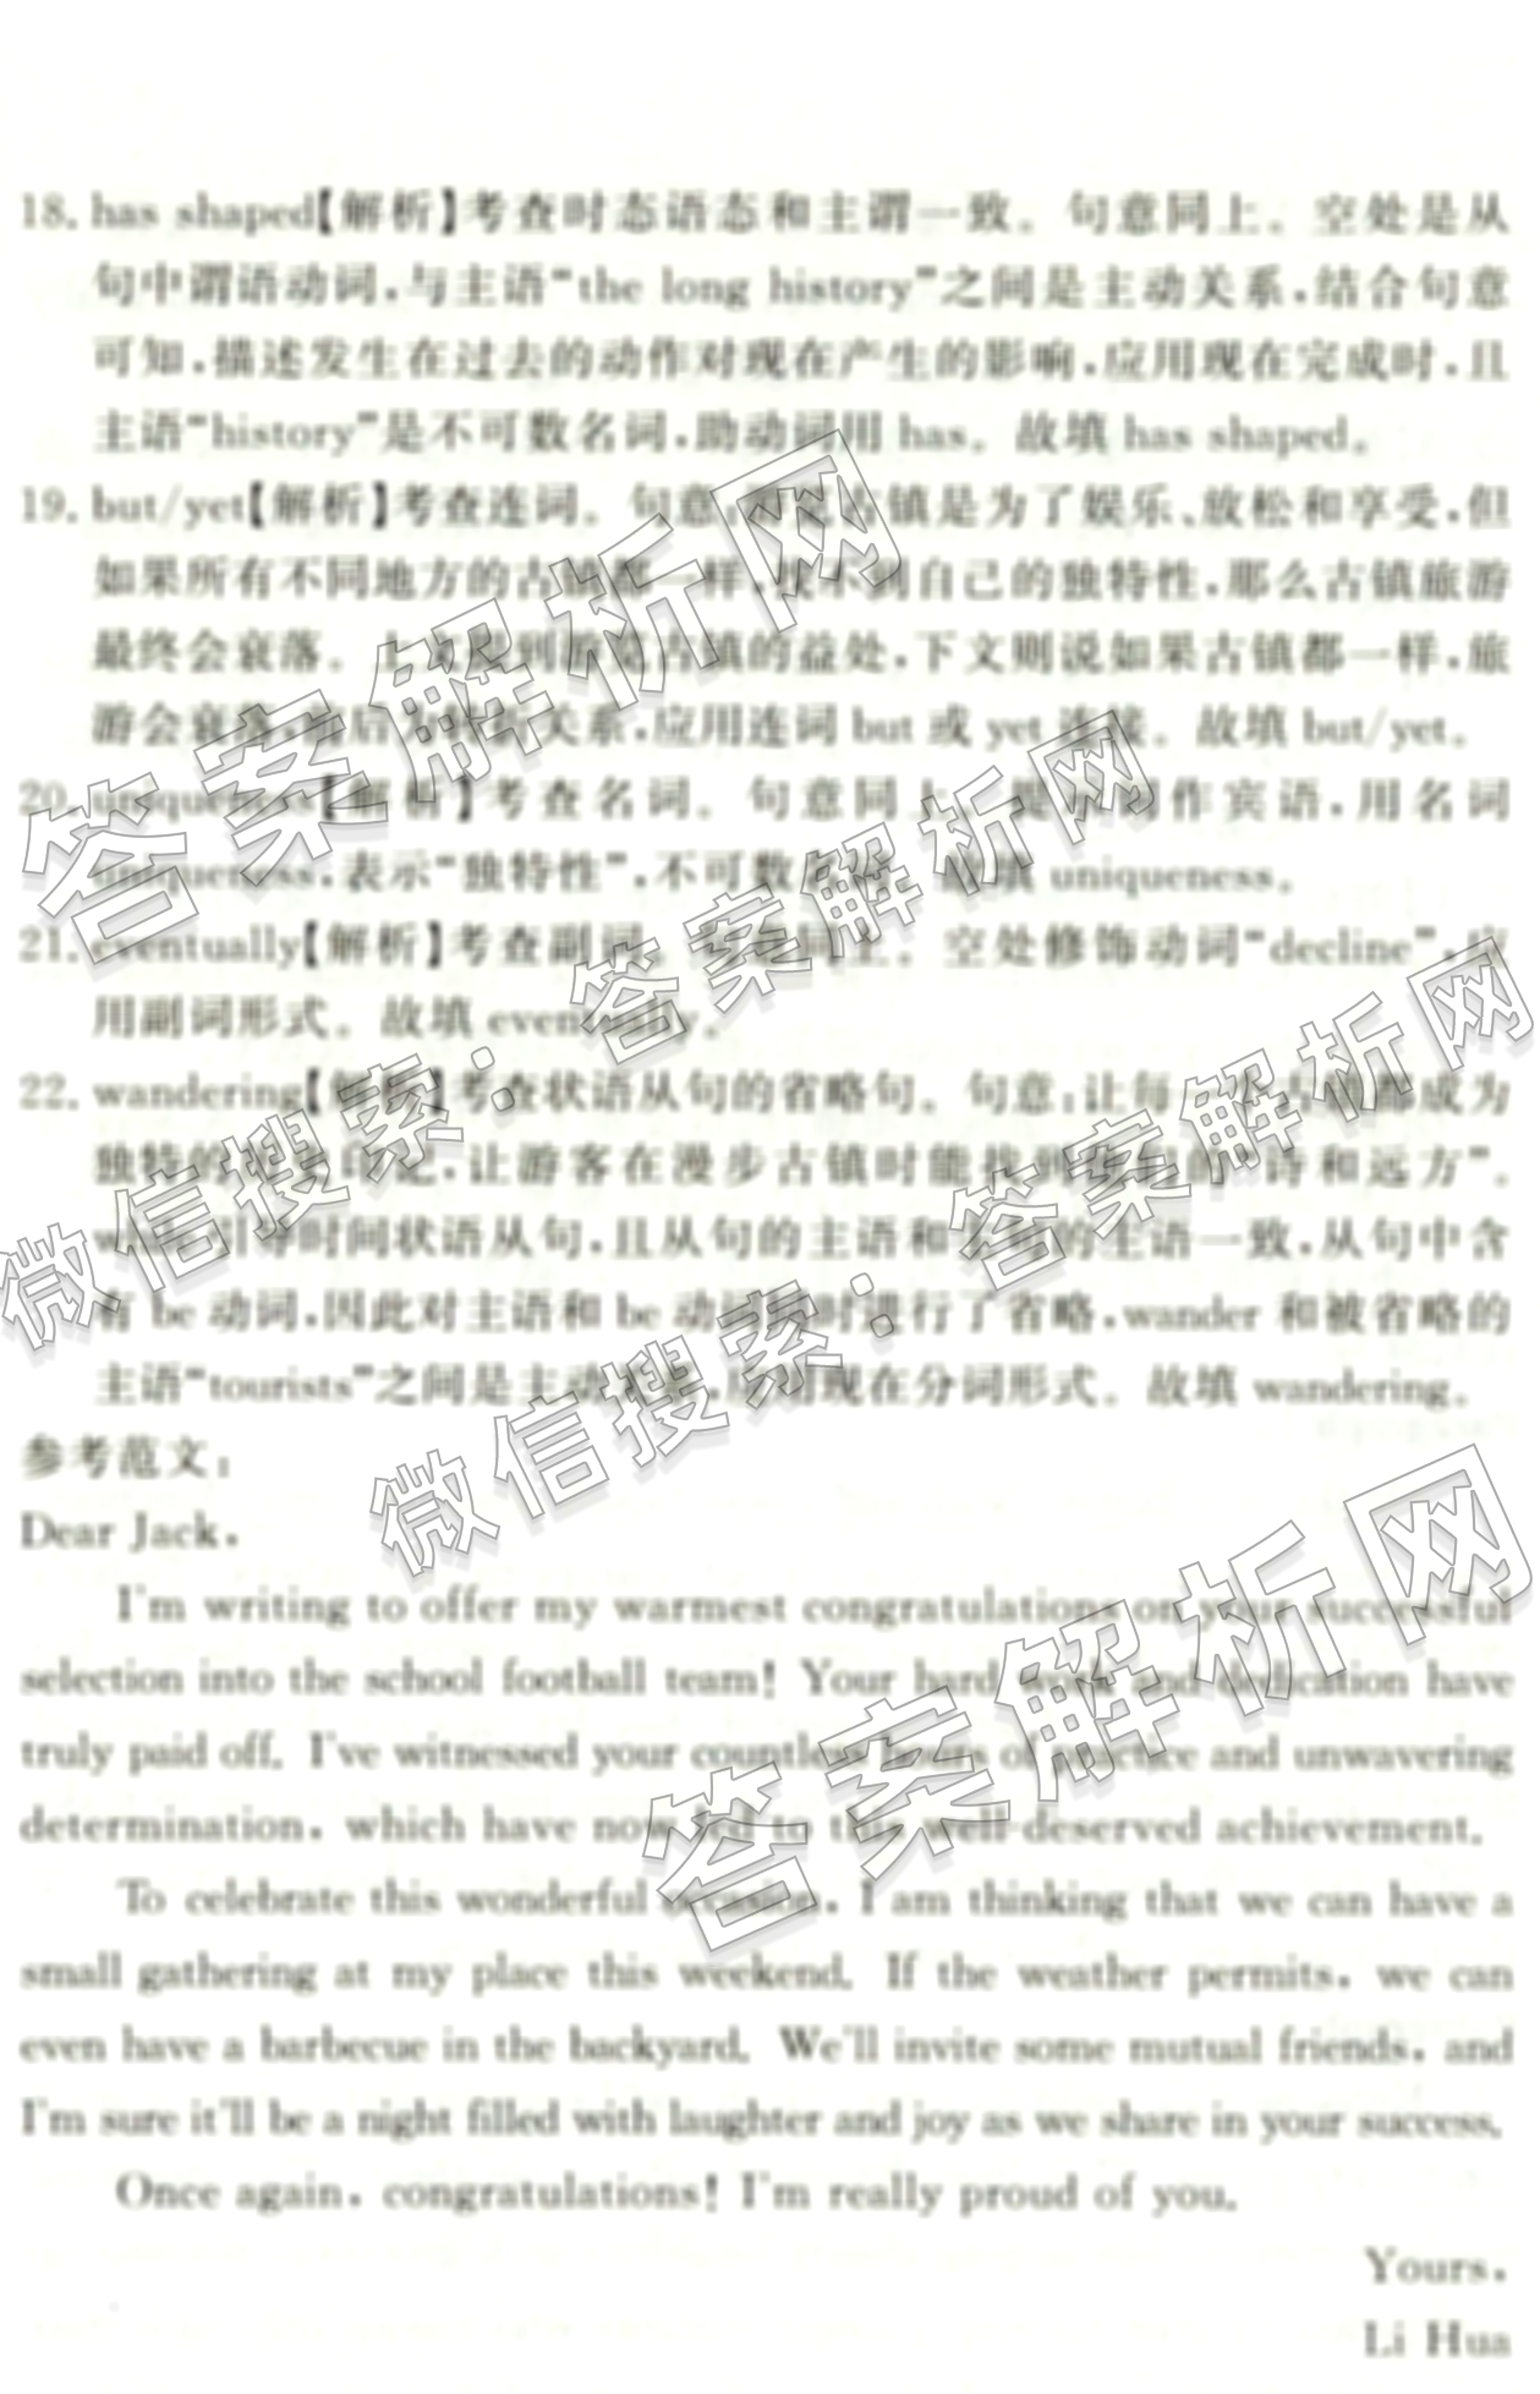 18. has shaped【解析】考查时态语态和主谓一致。句意同上。空处是从
句中谓语动词,与主语“the long history”之间是主动关系,结合句意
可知,描述发生在过去的动作对现在产生的影响,应用现在完成时,且
主语“history”是不可数名词,助动词用 has。故填 has shaped。
19. but/yet【解析】考查连词。句意:古镇是为了娱乐、放松和享受,但
如果所有不同地方的古镇都一样,找不到自己的独特性,那么古镇旅游
最终会衰落。上文提到游览古镇的益处,下文则说如果古镇都一样,旅
游会衰落,前后为转折关系,应用连词 but 或 yet 连接。故填 but/yet。
20. uniqueness【解析】考查名词。句意同上。作宾语,用名词
uniqueness,表示“独特性”,不可数名词。故填 uniqueness。
21. eventually【解析】考查副词。句意同上。空处修饰动词“decline”,应
用副词形式。故填 eventually。
22. wandering【解析】考查状语从句的省略句。句意:让每古镇都成为
独特的,让游客在漫步古镇时能找到的“诗和远方”。
when 引导时间状语从句,且从句的主语和主句的主语一致,从句中含
有 be 动词,因此对主语和 be 动词同时进行了省略,wander 和被省略的
主语“tourists”之间是主动关系,应用现在分词形式。故填 wandering。
参考范文:
Dear Jack,
I'm writing to offer my warmest congratulations on your successful
selection into the school football team! Your hard work and dedication have
truly paid off. I've witnessed your countless hours of practice and unwavering
determination, which have now led to this well-deserved achievement.
To celebrate this wonderful occasion, I am thinking that we can have a
small gathering at my place this weekend. If the weather permits, we can
even have a barbecue in the backyard. We'll invite some mutual friends, and
I'm sure it'll be a night filled with laughter and joy as we share in your success.
Once again, congratulations! I'm really proud of you.
Yours,
Li Hua
答案解析网
微信搜索:答案解析网
微信搜索:答案解析网
答案解析网